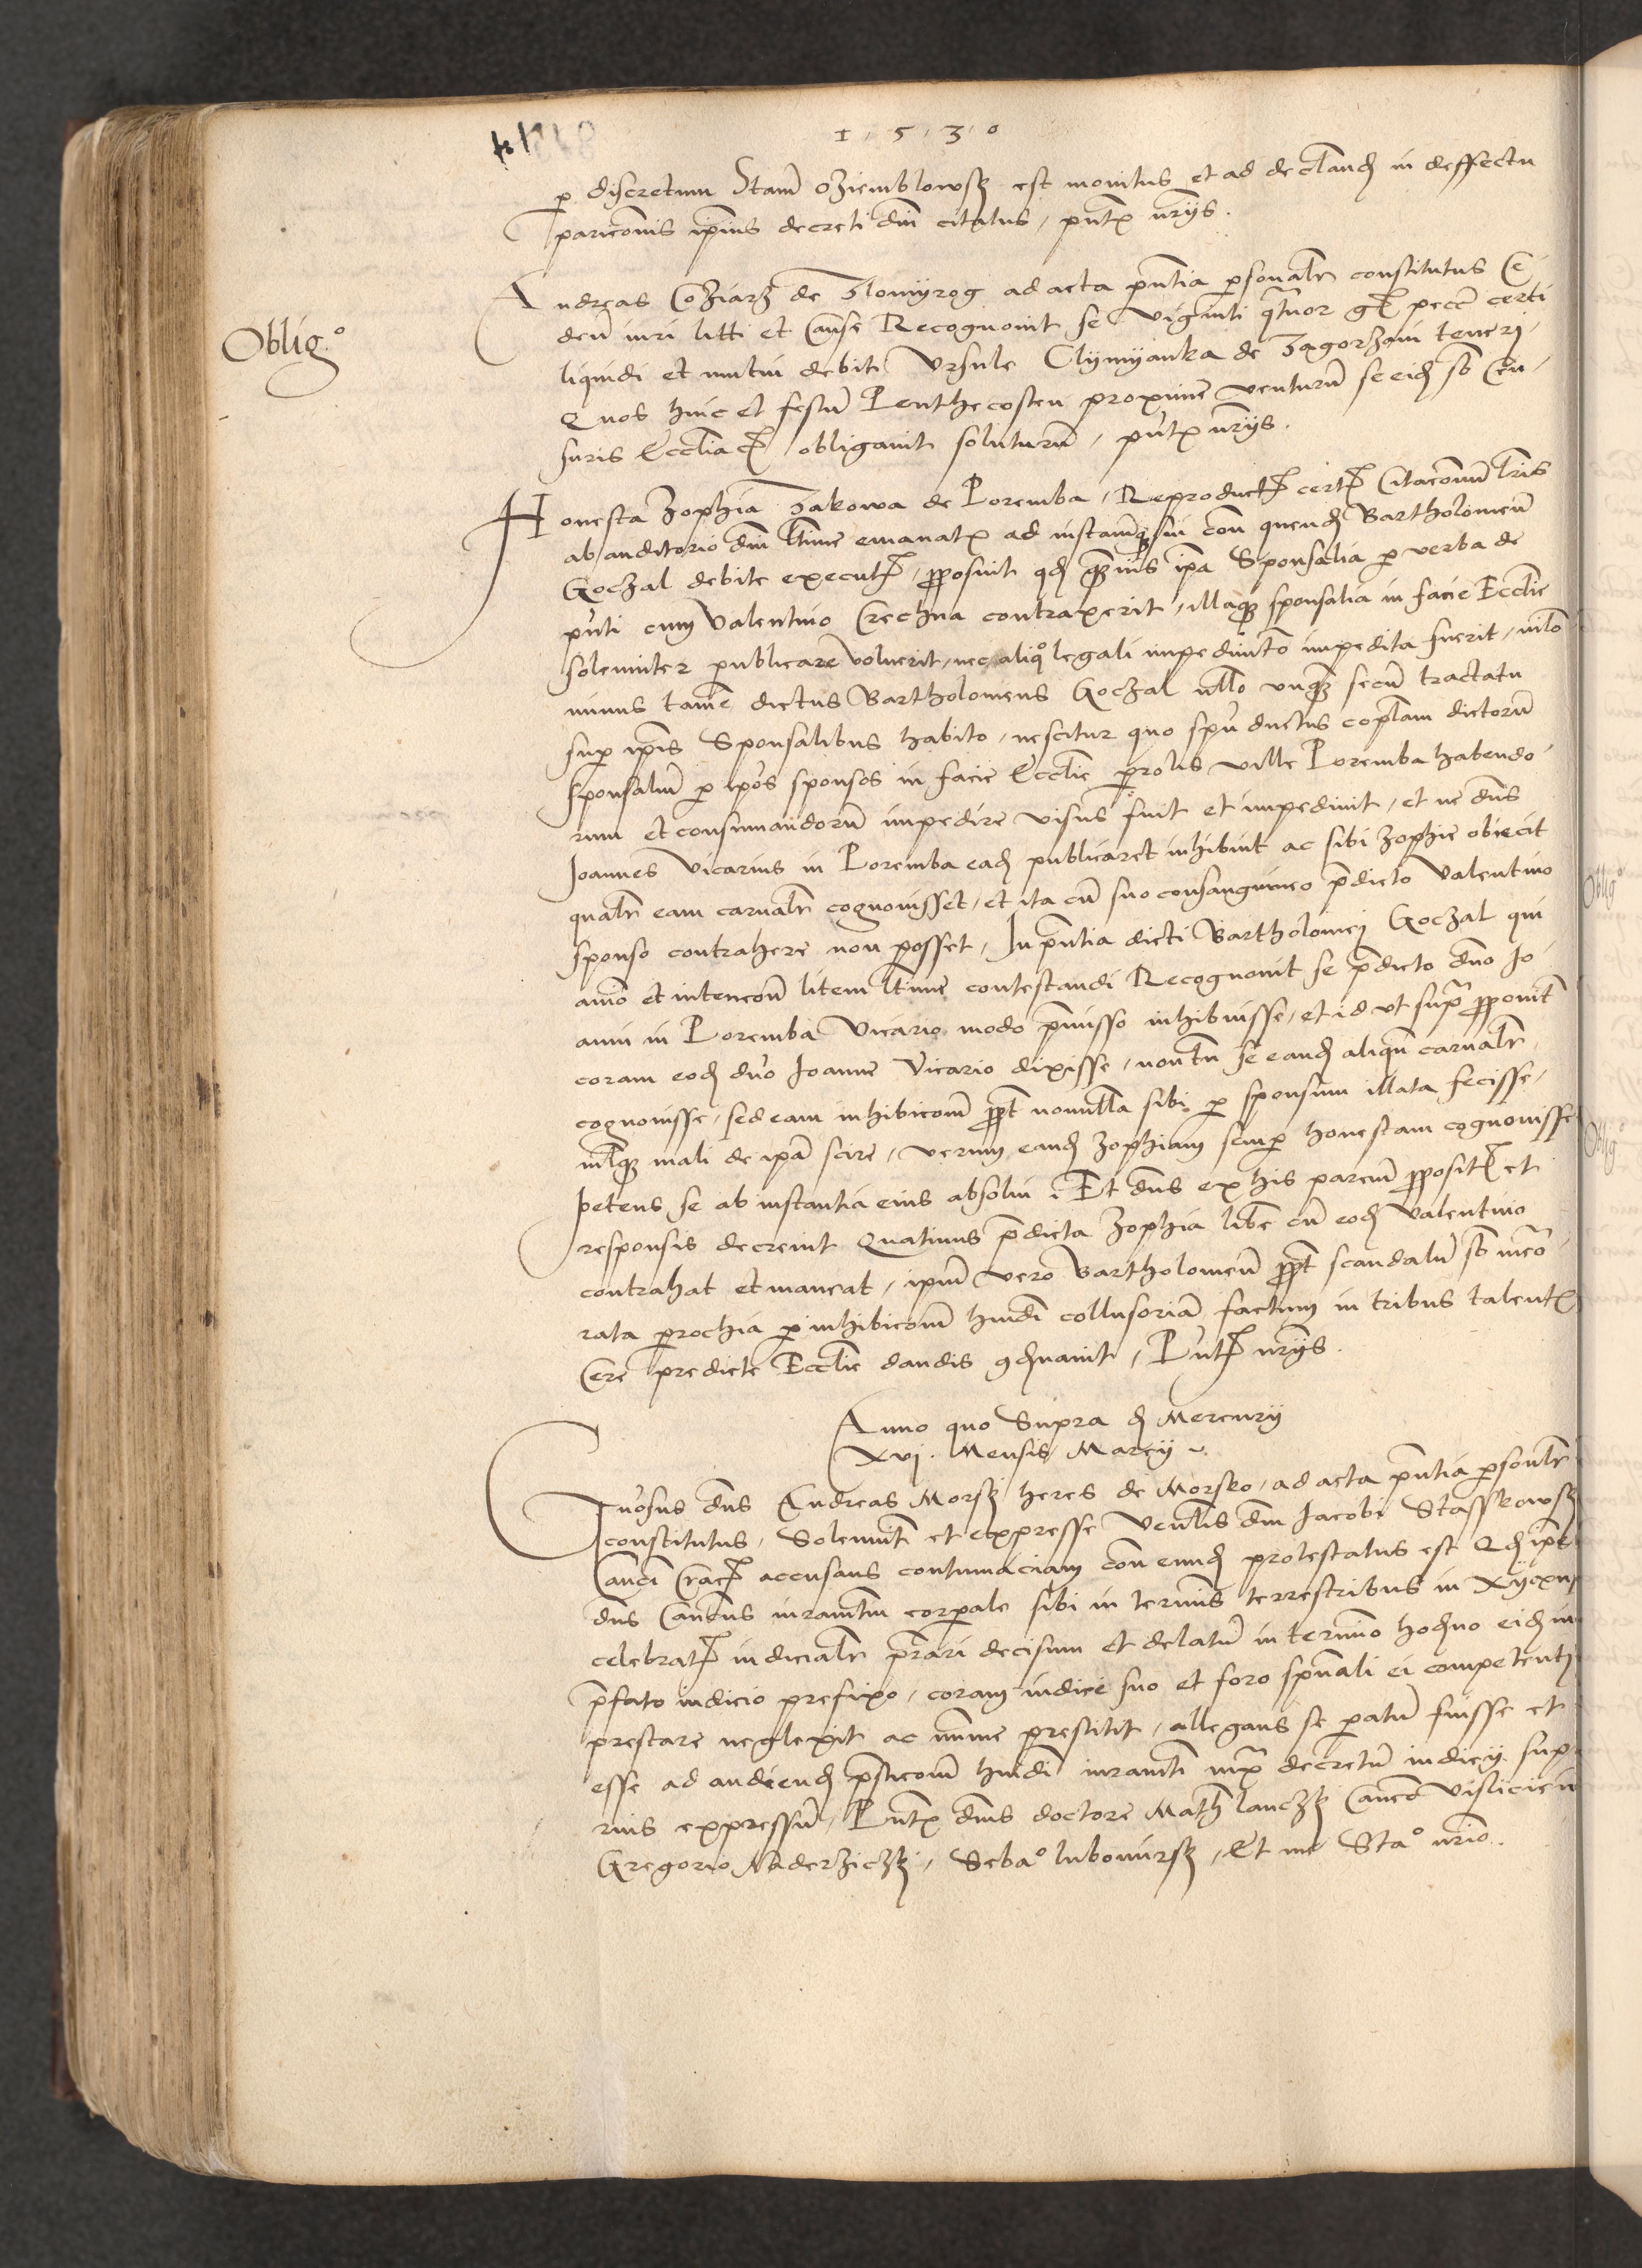 1 5 3 0
p discretum Stanm Oziemblowskj est monitus et ad declarand in deffectu
paricionis ipius decreti dni citatus, pntx nriis.
Oblig.o
Andreas Coziarz de Zlomyrog ad acta pntia psonalr constitutus Ce-
den iuri litti et cause Recognovit se viginti qtuor gr pecc certi
liquidi et mutui debiti Ursule Clymyanka de Zagorzani teneri,
Quos hinc et festum Penthecosten proxime venturum se eid sb Cen-
suris Ecclia obligavit soluturum, pntx nriis.
Honesta Zophia Zakowa de Poremba, Reproduct cert Citacionum lris
ab auditorio dni ltime emanatx ad instanm sui con quend Bartholomeum
Goczal debite execut, pposuit qd quis ipa Sponsalia p verba de
pnti cum Valentino Crechna contraxerit, illaq sponsalia in facie Ecclie
solemniter publicare voluerit, nec aliqo legali impedimto impedita fuerit, nilo
minus tamen dictus Bartholomeus Goczal nllo unq secum tractatu
sup ipis Sponsalibus habito, nescitur quo spu ductus coplam dictorum
sponsalium p ipos sponsos in facie Ecclie prolis ville Poremba habendo-
rum et consumandorum impedire visus fuit et impedivit, et ne dns
Joannes vicarius in Poremba ead publicaret inhibuit ac sibi Zophie obiecit
qualr eam carnalr cognovisset, et ita cum suo consanguineo pdicto Valentino
sponso contrahere non posset, In pntia dicti Bartholomej Goczal qui
animo et intencione litem ltime contestandi Recognovit se pdicto dno Jo-
anni in Poremba Vicario modo pmisso inhibuisse, et id ut supra pponit
coram eod dno Joanne Vicario dixisse, non tn se eand aliqn carnalr
cognovisse, sed eam inhibicionem ppt nonnulla sibi p sponsum illata fecisse,
nilq mali de ipa scire, verum eand Zophiam semp honestam cognovisse
petens se ab instantia eius absolui. Et dns ex his parcium pposit et
responsis decrevit Quatinus pdicta Zophia libe cum eod Valentino
contrahat et maneat, ipum vero Bartholomeum ppt scandalum sb memo-
rata prochia p inhibicionem hmdi collusoriam factum in tribus talentx
Cere predicte Ecclie dandis 9dnavit, Pntx nriis.
Anno quo Supra d Mercurij
xvj. Mensis Marcij
Gnosus dns Andreas Morskj heres de Morsko, ad acta pntia psonlr
constitutus, Solemnit et expresse venlis dni Jacobi Stasskowskj
Canci Crac accusans contumaciam con eund protestatus est Qd ipe
dns Canous iuramtm corporale sibi in terminis terrestribus in Xyaxn
celebrat iudicialr prari decisum et delatum in termino hodno eid in
pfato iudicio prefixo, coram iudice suo et foro spuali ei competenti
prestare neglexit ac mime prestitit, allegans se patum fuisse et
esse ad audiend psticionem hmdi iuramti iuxta decretum iudicij sup
rius expressum, Pntx dnis doctore Math lanczkj Canco Visliciensi
Gregorio Naderziczkj, Sebao lubomirskj, Et me Stao nrio.